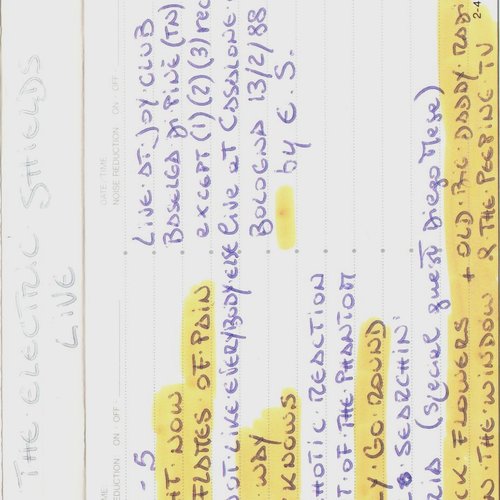 THE ELECTRIC SHIELDS
LIVE
ME:
NOISE REDUCTION ON OFF
-5
HT NOW
FLAMES OF PAIN
NOT LIKE EVERYBODY ELSE
WAY
KNOWS
HOTIC REACTION
T OF THE PHANTOM
Y GO ROUND
SEARCHIN'
CID (special guest Diego Mese)
CK FLOWERS + OLD BIG DADDY RADI
THE WINDOW & THE PEEPING TV
DATE/TIME
NOISE REDUCTION ON OFF
LIVE AT JOY CLUB
BASELGA DI PINÈ (TN)
EXCEPT (1) (2) (3) rec
live at CASALONE
BOLOGNA 13/2/88
by E.S.
2-4